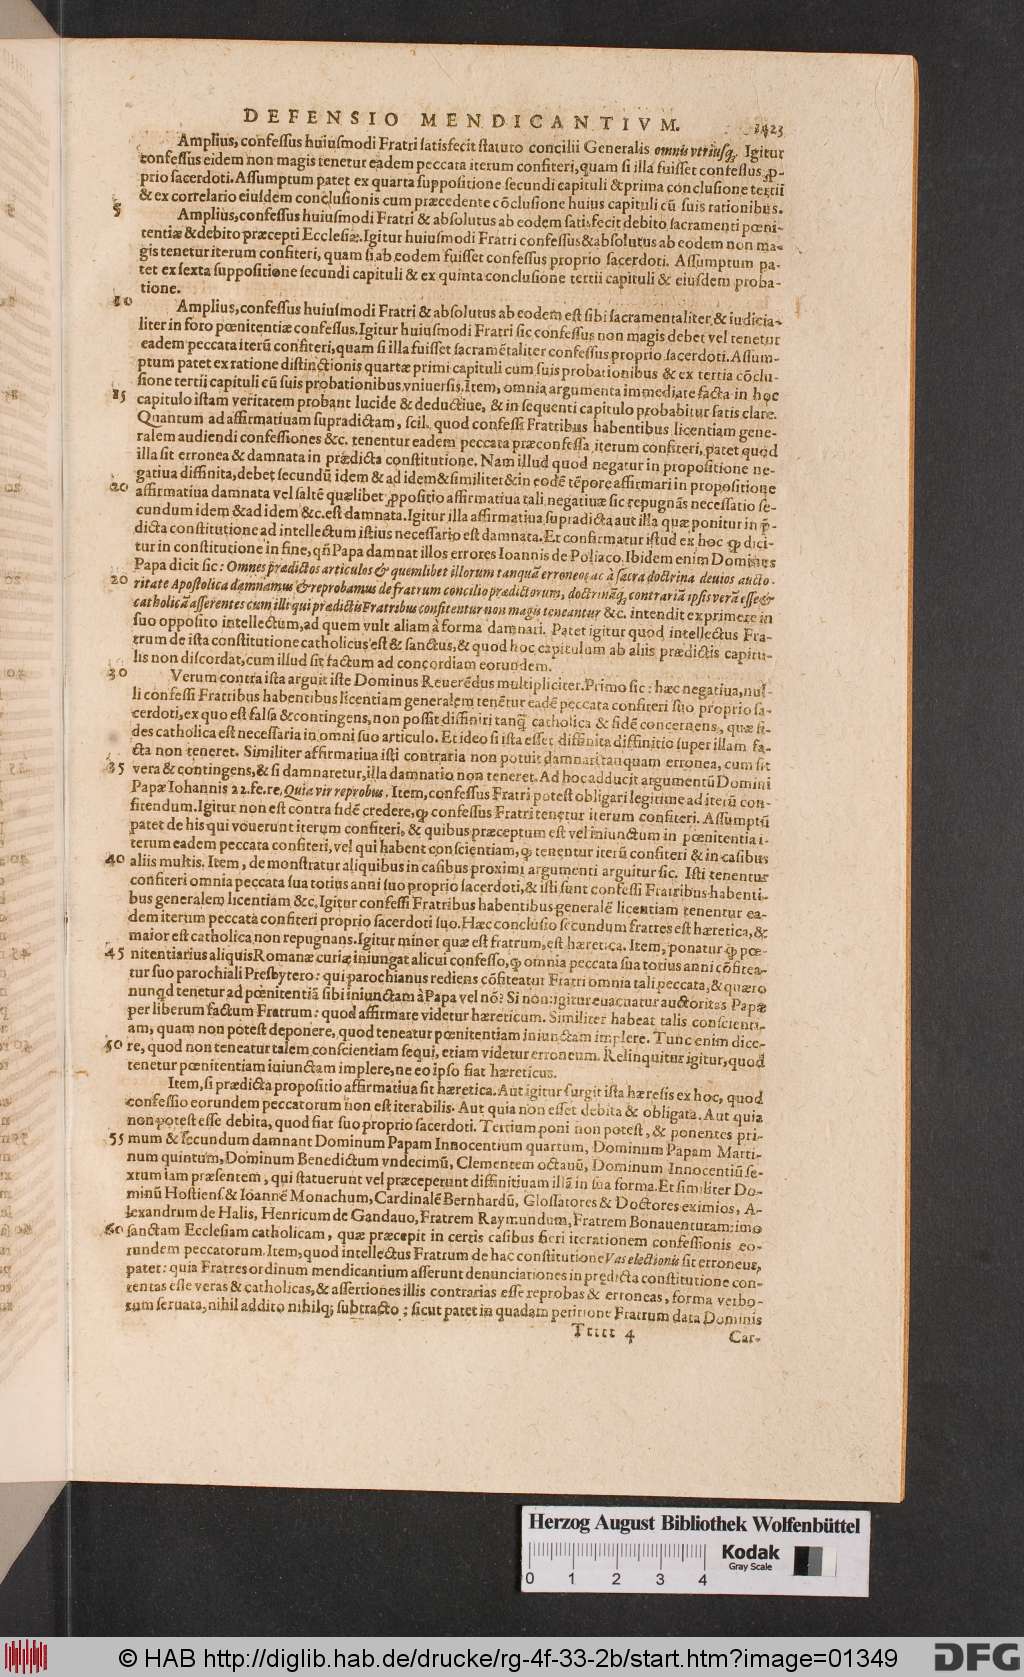 DEFENSIO MENDICANTIVM. 1423
Amplius, confessus huiusmodi Fratri satisfecit statuto concilii Generalis omnis vtriusq;. Igitur
confessus eidem non magis tenetur eadem peccata iterum confiteri, quam si illa fuisset confessus ꝓ-
prio sacerdoti. Assumptum patet ex quarta suppositione secundi capituli & prima conclusione tertii
& ex correlario eiusdem conclusionis cum præcedente cõclusione huius capituli cũ suis rationibus.
5 Amplius, confessus huiusmodi Fratri & absolutus ab eodem satisfecit debito sacramenti pœni-
tentiæ & debito præcepti Ecclesiæ. Igitur huiusmodi Fratri confessus & absolutus ab eodem non ma-
gis tenetur iterum confiteri, quam si ab eodem fuisset confessus proprio sacerdoti. Assumptum pa-
tet ex sexta suppositione secundi capituli & ex quinta conclusione tertii capituli & eiusdem proba-
tione.
10 Amplius, confessus huiusmodi Fratri & absolutus ab eodem est sibi sacramentaliter & iudicia-
liter in foro pœnitentiæ confessus. Igitur huiusmodi Fratri sic confessus non magis debet vel tenetur
eadem peccata iterũ confiteri, quam si illa fuisset sacramẽtaliter confessus proprio sacerdoti. Assum-
ptum patet ex ratione distinctionis quartæ primi capituli cum suis probationibus & ex tertia cõclu-
sione tertii capituli cũ suis probationibus vniuersis. Item, omnia argumenta immediate facta in hoc
15 capitulo istam veritatem probant lucide & deductiue, & in sequenti capitulo probabitur satis clare.
Quantum ad affirmatiuam supradictam, scil. quod confessi Fratribus habentibus licentiam gene-
ralem audiendi confessiones &c. tenentur eadem peccata præconfessa iterum confiteri, patet quod
illa sit erronea & damnata in prædicta constitutione. Nam illud quod negatur in propositione ne-
gatiua diffinita, debet secundũ idem & ad idem & similiter & in eodẽ tẽpore affirmari in propositione
20 affirmatiua damnata vel saltẽ quælibet ꝓpositio affirmatiua tali negatiuæ sic repugnãs necessario se-
cundum idem & ad idem &c. est damnata. Igitur illa affirmatiua supradicta aut illa quæ ponitur in p̃-
dicta constitutione ad intellectum istius necessario est damnata. Et confirmatur istud ex hoc ꝙ dici-
tur in constitutione in fine, qñ Papa damnat illos errores Ioannis de Poliaco. Ibidem enim Dominus
Papa dicit sic: Omnes prædictos articulos & quemlibet illorum tanquã erroneos ac à sacra doctrina deuios aucto-
20 ritate Apostolica damnamus & reprobamus de fratrum concilio prædictorum, doctrinãq; contrariã ipsis verã esse &
catholicã asserentes cum illi qui prædictis Fratribus confitentur non magis teneantur &c. intendit exprimere in
suo opposito intellectum, ad quem vult aliam à forma damnari. Patet igitur quod intellectus Fra-
trum de ista constitutione catholicus est & sanctus, & quod hoc capitulum ab aliis prædictis capitu-
lis non discordat, cum illud sit factum ad concordiam eorundem.
30 Verum contra ista arguit iste Dominus Reuerẽdus multipliciter. Primo sic: hæc negatiua, nul-
li confessi Fratribus habentibus licentiam generalem tenẽtur eadẽ peccata confiteri suo proprio sa-
cerdoti, ex quo est falsa & contingens, non possit diffiniri tanq̃ catholica & fidẽ concernens, quæ fi-
des catholica est necessaria in omni suo articulo. Et ideo si ista esset diffinita diffinitio super illam fa-
cta non teneret. Similiter affirmatiua isti contraria non potuit damnari tanquam erronea, cum sit
35 vera & contingens, & si damnaretur, illa damnatio non teneret. Ad hoc adducit argumentũ Domini
Papæ Iohannis 22. fe. re. Quia vir reprobus. Item, confessus Fratri potest obligari legitime ad iterũ con-
fitendum. Igitur non est contra fidẽ credere, ꝙ confessus Fratri tenetur iterum confiteri. Assumptũ
patet de his qui vouerunt iterum confiteri, & quibus præceptum est vel iniunctum in pœnitentia i-
terum eadem peccata confiteri, vel qui habent conscientiam, ꝙ tenentur iterũ confiteri & in casibus
40 aliis multis. Item, demonstratur aliquibus in casibus proximi argumenti arguitur sic. Isti tenentur
confiteri omnia peccata sua totius anni suo proprio sacerdoti, & isti sunt confessi Fratribus habenti-
bus generalem licentiam &c. Igitur confessi Fratribus habentibus generalẽ licentiam tenentur ea-
dem iterum peccata confiteri proprio sacerdoti suo. Hæc conclusio secundum fratres est hæretica, &
maior est catholica non repugnans. Igitur minor quæ est fratrum, est hæretica. Item, ponatur ꝙ pœ-
45 nitentiarius aliquis Romanæ curiæ iniungat alicui confesso, ꝙ omnia peccata sua totius anni cõfitea-
tur suo parochiali Presbytero: qui parochianus rediens cõfiteatur Fratri omnia tali peccata, & quæro
nunquid tenetur ad pœnitentiã sibi iniunctam à Papa vel nõ? Si non: igitur euacuatur auctoritas Papæ
per liberum factum Fratrum: quod affirmare videtur hæreticum. Similiter habeat talis conscienti-
am, quam non potest deponere, quod teneatur pœnitentiam iniunctam implere. Tunc enim dice-
50 re, quod non teneatur talem conscientiam sequi, etiam videtur erroneum. Relinquitur igitur, quod
tenetur pœnitentiam iuiunctam implere, ne eo ipso fiat hæreticus.
Item, si prædicta propositio affirmatiua sit hæretica. Aut igitur surgit ista hæresis ex hoc, quod
confessio eorundem peccatorum non est iterabilis. Aut quia non esset debita & obligata. Aut quia
non potest esse debita, quod fiat suo proprio sacerdoti. Tertium poni non potest, & ponentes pri-
55 mum & secundum damnant Dominum Papam Innocentium quartum, Dominum Papam Marti-
num quintum, Dominum Benedictum vndecimũ, Clementem octauũ, Dominum Innocentiũ se-
xtum iam præsentem, qui statuerunt vel præceperunt diffinitiuam illã in sua forma. Et similiter Do-
minũ Hostiens & Ioannẽ Monachum, Cardinalẽ Bernhardũ, Glossatores & Doctores eximios, A-
lexandrum de Halis, Henricum de Gandauo, Fratrem Raymundum, Fratrem Bonauenturam: imo
60 sanctam Ecclesiam catholicam, quæ præcepit in certis casibus fieri iterationem confessionis eo-
rundem peccatorum. Item, quod intellectus Fratrum de hac constitutione Vas electionis sit erroneus,
patet: quia Fratres ordinum mendicantium asserunt denunciationes in prędicta constitutione con-
tentas esse veras & catholicas, & assertiones illis contrarias esse reprobas & erroneas, forma verbo-
rum seruata, nihil addito nihilq; subtracto: sicut patet in quadam petitione Fratrum data Dominis
Tttt 4 Car-
Herzog August Bibliothek Wolfenbüttel
0 1 2 3 4
Kodak
Gray Scale
© HAB http://diglib.hab.de/drucke/rg-4f-33-2b/start.htm?image=01349
DFG